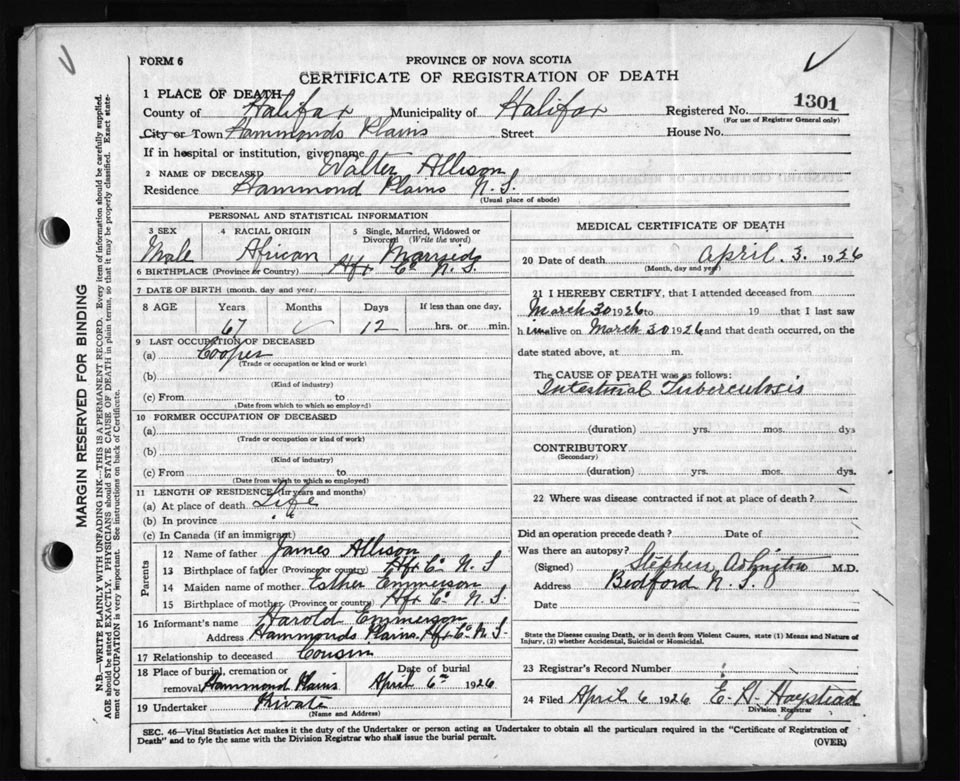 FORM 6
PROVINCE OF NOVA SCOTIA
CERTIFICATE OF REGISTRATION OF DEATH
1 PLACE OF DEATH
1301
County of Halifax Municipality of Halifax Registered No.
(For use of Registrar General only)
City or Town Hammonds Plains Street House No.
If in hospital or institution, give name
2 NAME OF DECEASED Walter Allison
Residence Hammond Plains N.S.
(Usual place of abode)
PERSONAL AND STATISTICAL INFORMATION
3 SEX 4 RACIAL ORIGIN 5 Single, Married, Widowed or Divorced (Write the word)
Male African Married
6 BIRTHPLACE (Province or Country) Hfx Co N.S.
7 DATE OF BIRTH (month, day and year)
8 AGE Years Months Days If less than one day,
67 12 hrs. or min.
9 LAST OCCUPATION OF DECEASED
(a) Cooper
(Trade or occupation or kind or work)
(b)
(Kind of industry)
(c) From to
(Date from which to which so employed)
10 FORMER OCCUPATION OF DECEASED
(a)
(Trade or occupation or kind of work)
(b)
(Kind of industry)
(c) From to
(Date from which to which so employed)
11 LENGTH OF RESIDENCE (in years and months)
(a) At place of death Life
(b) In province "
(c) In Canada (if an immigrant)
Parents
12 Name of father James Allison
13 Birthplace of father (Province or country) Hfx Co N.S
14 Maiden name of mother Esther Emmerson
15 Birthplace of mother (Province or country) Hfx Co N.S.
16 Informant's name Harold Emmerson
Address Hammonds Plains Hfx Co N.S.
17 Relationship to deceased Cousin
18 Place of burial, cremation or removal Hammond Plains Date of burial April 6th 1926
19 Undertaker Private
(Name and Address)
MEDICAL CERTIFICATE OF DEATH
20 Date of death April. 3. 1926
(Month, day and year)
21 I HEREBY CERTIFY, that I attended deceased from
March 30 1926 to 19 that I last saw
him alive on March 30 1926 and that death occurred, on the
date stated above, at m.
The CAUSE OF DEATH was as follows:
Intestinal Tuberculosis
(duration) yrs. mos. dys
CONTRIBUTORY
(Secondary)
(duration) yrs. mos. dys.
22 Where was disease contracted if not at place of death?
Did an operation precede death? Date of
Was there an autopsy?
(Signed) Stephen M.D.
Address Bedford N.S.
Date
State the Disease causing Death, or in death from Violent Causes, state (1) Means and Nature of
Injury, (2) whether Accidental, Suicidal or Homicidal.
23 Registrar's Record Number
24 Filed April 6 1926 E. H. Haystead
Division Registrar
SEC. 46—Vital Statistics Act makes it the duty of the Undertaker or person acting as Undertaker to obtain all the particulars required in the "Certificate of Registration of
Death" and to fyle the same with the Division Registrar who shall issue the burial permit.
(OVER)
MARGIN RESERVED FOR BINDING
N.B.—WRITE PLAINLY WITH UNFADING INK—THIS IS A PERMANENT RECORD. Every item of information should be carefully supplied.
AGE should be stated EXACTLY. PHYSICIANS should STATE CAUSE OF DEATH in plain terms, so that it may be properly classified. Exact state-
ment of OCCUPATION is very important. See instructions on back of Certificate.